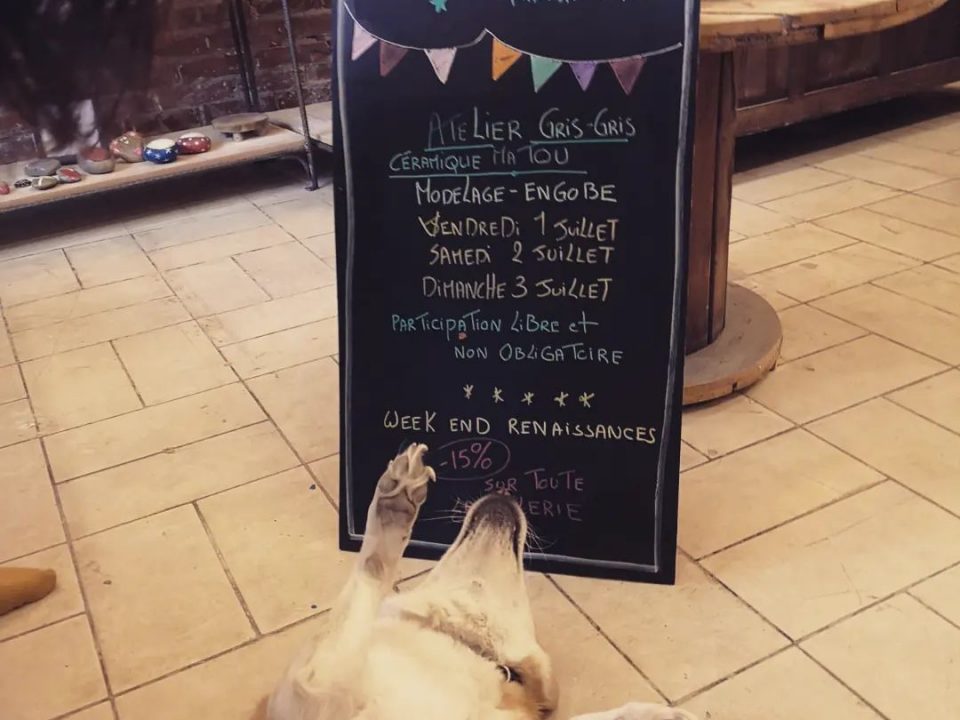 ATELIER GRIS-GRIS
CÉRAMIQUE MATOU
MODELAGE - ENGOBE
VENDREDI 1 JUILLET
SAMEDI 2 JUILLET
DIMANCHE 3 JUILLET
PARTICIPATION LIBRE et
NON OBLIGATOIRE
* * * * *
WEEK END RENAISSANCES
-15%
SUR TOUTE